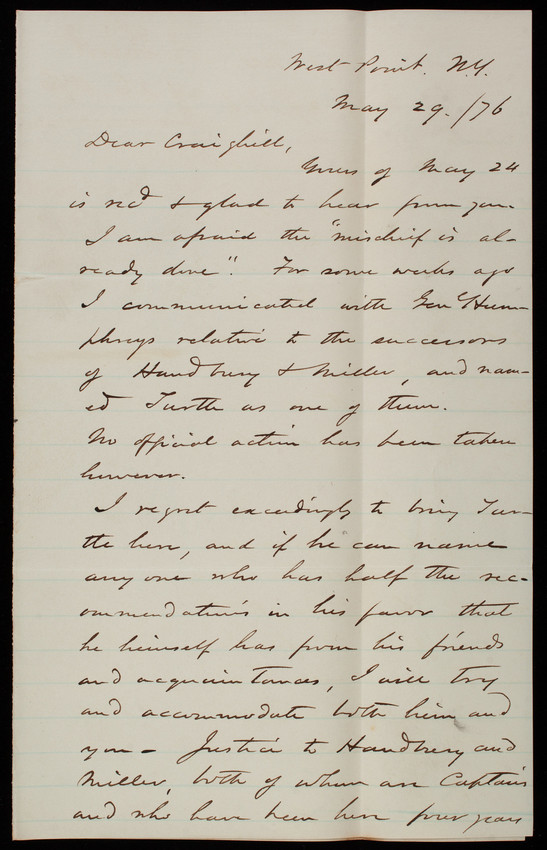 West Point. N.Y.
May 29. /76
Dear Craighill,
Yours of May 24
is recd & glad to hear from you.
I am afraid the "mischief is al-
ready done". For some weeks ago
I communicated with Genl Hum-
phreys relative to the successors
of Handbury & Miller, and nam-
ed Turtle as one of them.
No official action has been taken
however.
I regret exceedingly to bring Tur-
tle here, and if he can name
any one who has half the rec-
ommendations in his favor that
he himself has from his friends
and acquaintances, I will try
and accommodate both him and
you - Justice to Handbury and
Miller, both of whom are Captains
and who have been here four years